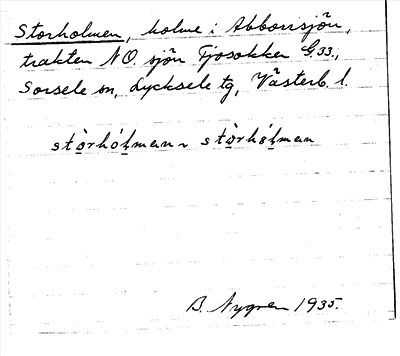 Storholmen, holme i Abborrsjön,
trakten NO. sjön Tjosokken G.33.,
Sorsele sn, Lycksele tg, Västerb. l.
stòrhólman ~ stòrhólman
B. Nygren 1935.